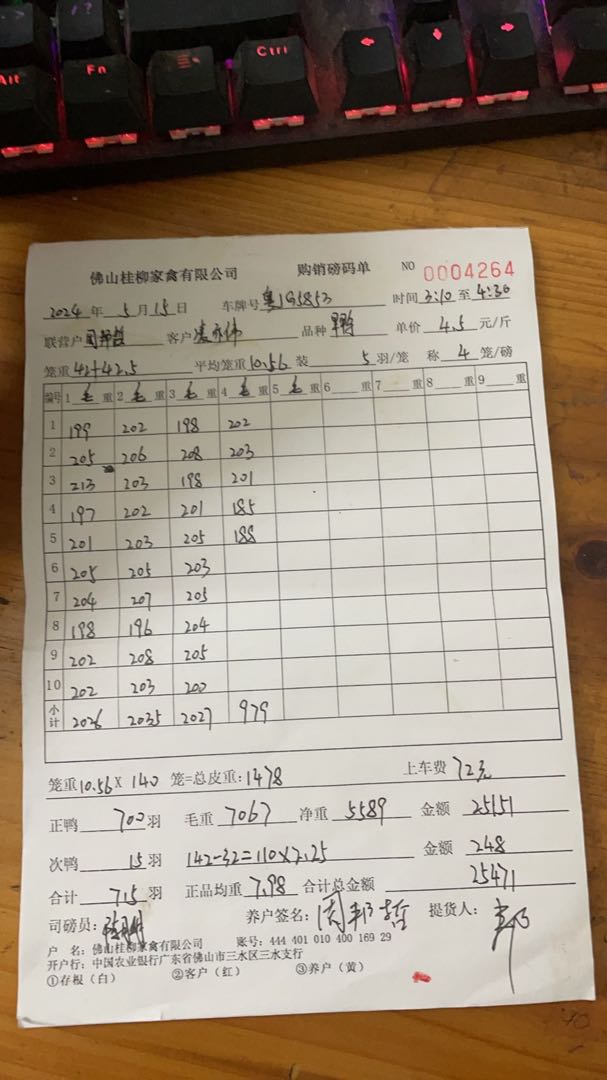 Alt
Fn
Ctrl
佛山桂柳家禽有限公司 购销磅码单 NO 0004264
2024 年 5 月 15 日 车牌号 粤JG5853 时间 3:10 至 4:30
联营户 客户 品种 单价 4.5 元/斤
笼重 42+42.5 平均笼重 10.56 装 5 羽/笼 称 4 笼/磅
编号 1 毛 重 2 毛 重 3 毛 重 4 毛 重 5 毛 重 6 重 7 重 8 重 9 重
1 199 202 198 202
2 205 206 208 203
3 213 203 198 201
4 197 202 201 185
5 201 203 205 188
6 205 205 203
7 204 207 205
8 198 196 204
9 202 208 205
10 202 203 200
小计 2026 2035 2027 979
笼重 10.56 × 140 笼=总皮重: 1478 上车费 72元
正鸭 700 羽 毛重 7067 净重 5589 金额 25151
次鸭 15 羽 142-32=110×2.25 金额 248
合计 715 羽 正品均重 7.98 合计总金额 25471
司磅员: 养户签名: 周邦哲 提货人:
户 名: 佛山桂柳家禽有限公司 账号: 444 401 010 400 169 29
开户行: 中国农业银行广东省佛山市三水区三水支行
①存根（白） ②客户（红） ③养户（黄）